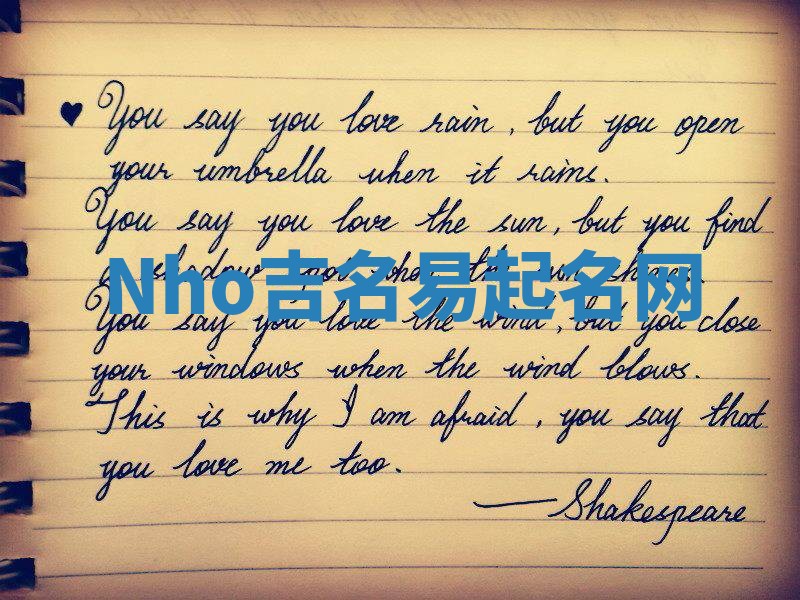 ♥ You say you love rain, but you open
your umbrella when it rains.
You say you love the sun, but you find
a shadow spot when the sun shines.
Nho吉名易起名网
You say you love the wind, but you close
your windows when the wind blows.
This is why I am afraid, you say that
you love me too.
— Shakespeare